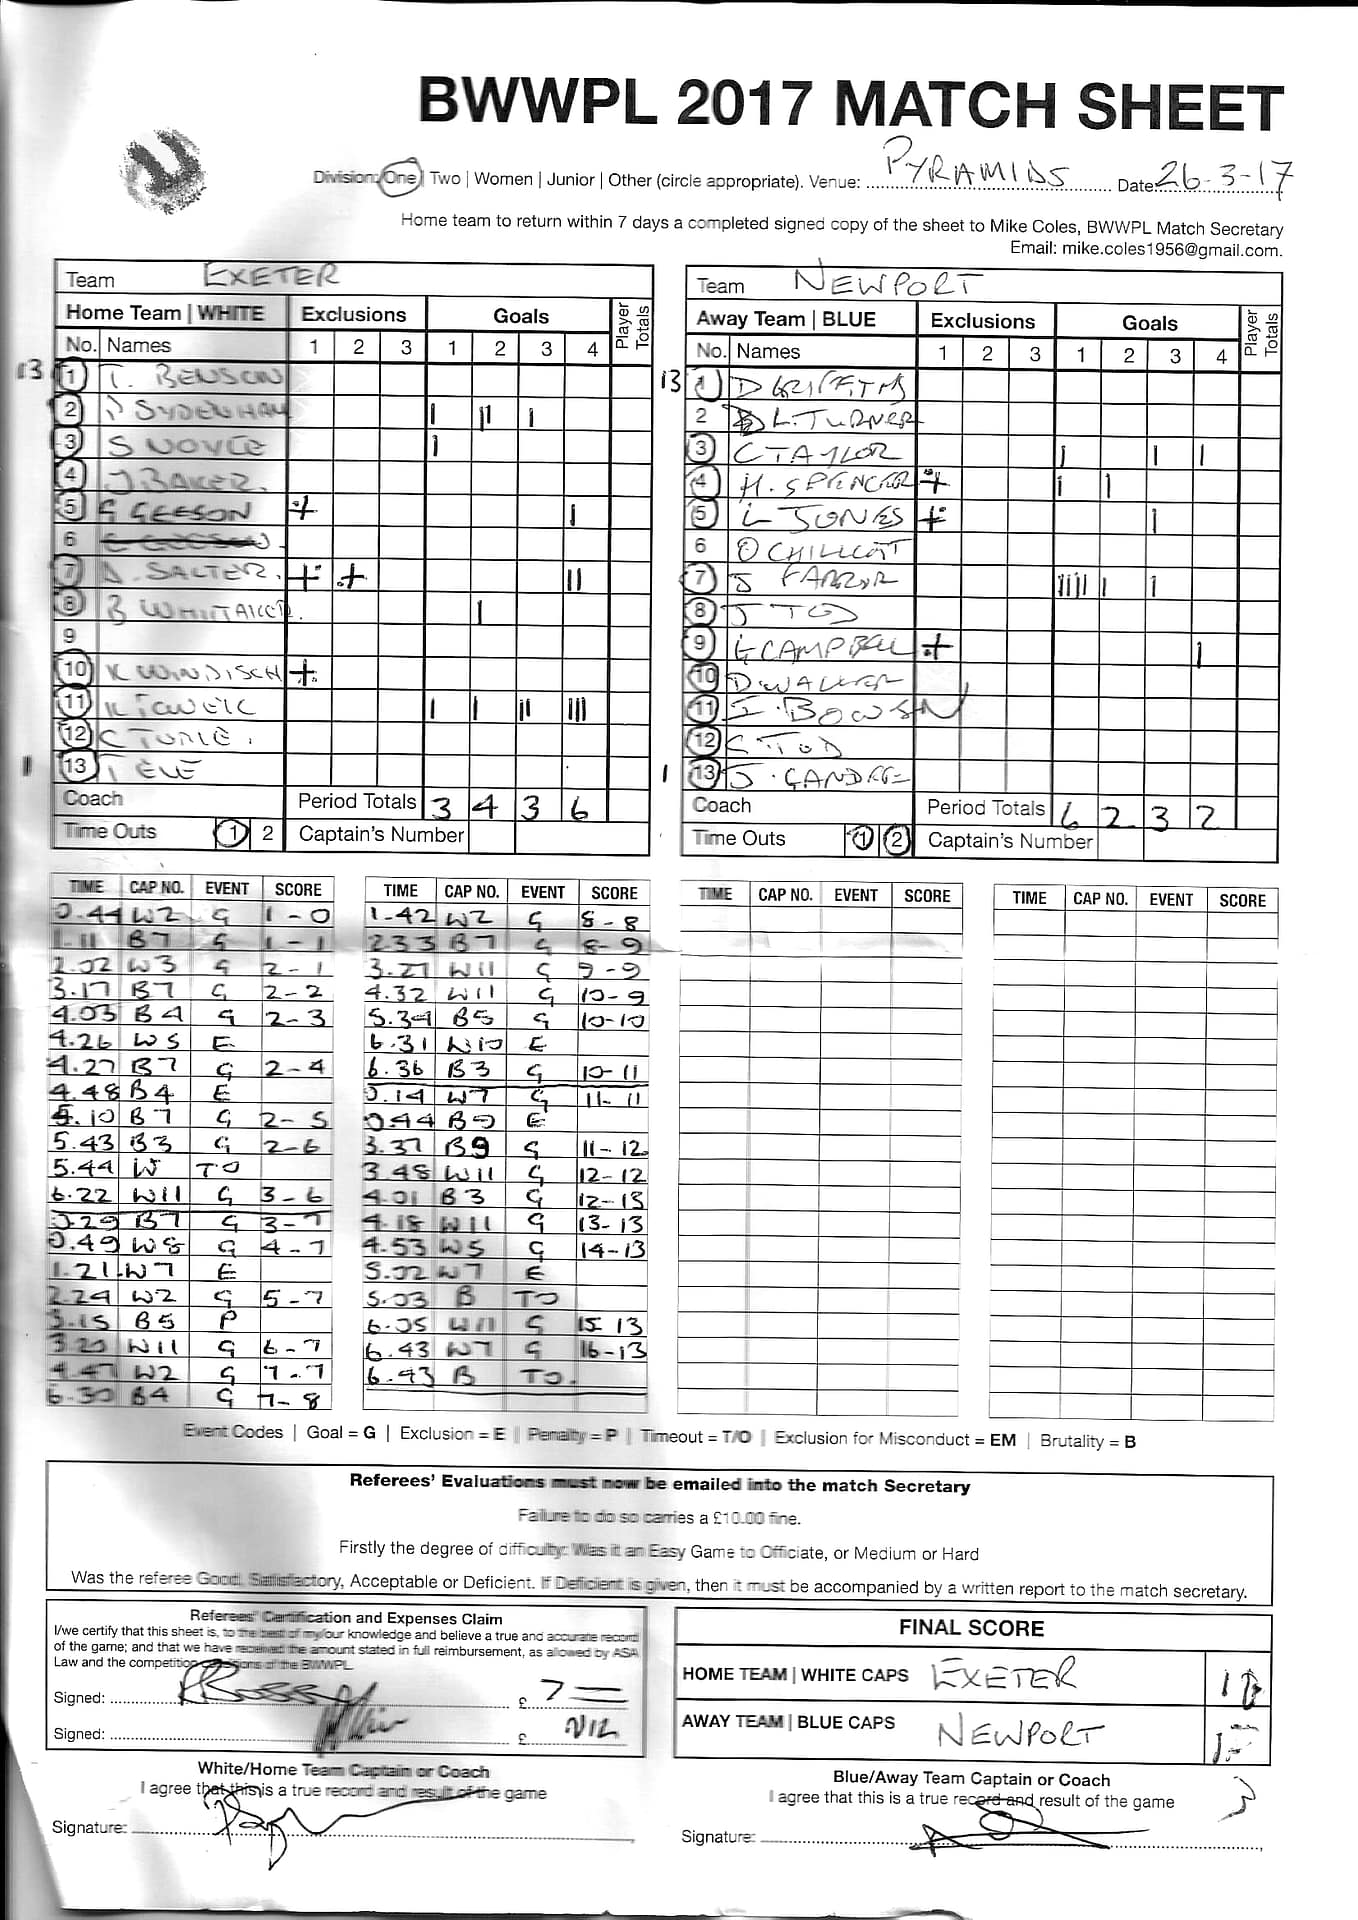 BWWPL 2017 MATCH SHEET
Division: One | Two | Women | Junior | Other (circle appropriate). Venue: PYRAMIDS Date 26-3-17
Home team to return within 7 days a completed signed copy of the sheet to Mike Coles, BWWPL Match Secretary
Email: mike.coles1956@gmail.com.
Team EXETER
Home Team | WHITE Exclusions Goals Player Totals
No. Names 1 2 3 1 2 3 4
13 1 T. BENSON
2 SYDENHAM | || |
3 S NOYCE |
4 J BAKER.
5 G GEESON + |
6
7 D. SALTER. + + ||
8 B WHITTAKER. |
9
10 K WINDISCH +
11 K | | || |||
12 C TURLE.
1 13 TELE
Coach Period Totals 3 4 3 6
Time Outs 1 2 Captain's Number
Team NEWPORT
Away Team | BLUE Exclusions Goals Player Totals
No. Names 1 2 3 1 2 3 4
13 1 D GRIFFITHS
2 L. TURNER
3 C TAYLOR | | |
4 H. SPENCER + | |
5 L JONES + |
6 O CHILLCOT
7 J FARROR |||| | |
8 J TOD
9 G CAMPBELL + |
10 D. WALKER
11 I. BOWEN
12 C TOD
1 13 J. GANDREE
Coach Period Totals 6 2 3 2
Time Outs 1 2 Captain's Number
TIME CAP NO. EVENT SCORE
0.44 W2 G 1-0
1.11 B7 G 1-1
2.02 W3 G 2-1
3.17 B7 G 2-2
4.03 B4 G 2-3
4.26 W5 E
4.27 B7 G 2-4
4.48 B4 E
5.10 B7 G 2-5
5.43 B3 G 2-6
5.44 W TO
6.22 W11 G 3-6
0.29 B7 G 3-7
0.49 W8 G 4-7
1.21 W7 E
2.24 W2 G 5-7
3.15 B5 P
3.20 W11 G 6-7
4.47 W2 G 7-7
6.30 B4 G 7-8
TIME CAP NO. EVENT SCORE
1.42 W2 G 8-8
2.33 B7 G 8-9
3.27 W11 G 9-9
4.32 W11 G 10-9
5.34 B5 G 10-10
6.31 W10 E
6.36 B3 G 10-11
0.14 W7 G 11-11
0.44 B9 E
3.37 B9 G 11-12
3.48 W11 G 12-12
4.01 B3 G 12-13
4.18 W11 G 13-13
4.53 W5 G 14-13
5.02 W7 E
5.03 B TO
6.05 W11 G 15-13
6.43 W7 G 16-13
6.43 B TO.
TIME CAP NO. EVENT SCORE
TIME CAP NO. EVENT SCORE
Event Codes | Goal = G | Exclusion = E | Penalty = P | Timeout = T/O | Exclusion for Misconduct = EM | Brutality = B
Referees' Evaluations must now be emailed into the match Secretary
Failure to do so carries a £10.00 fine.
Firstly the degree of difficulty: Was it an Easy Game to Officiate, or Medium or Hard
Was the referee Good, Satisfactory, Acceptable or Deficient. If Deficient is given, then it must be accompanied by a written report to the match secretary.
Referees' Certification and Expenses Claim
I/we certify that this sheet is, to the best of my/our knowledge and believe a true and accurate record
of the game; and that we have received the amount stated in full reimbursement, as allowed by ASA
Law and the competition conditions of the BWWPL
Signed: £ 7
Signed: £ NIL
FINAL SCORE
HOME TEAM | WHITE CAPS EXETER
AWAY TEAM | BLUE CAPS NEWPORT
White/Home Team Captain or Coach
I agree that this is a true record and result of the game
Signature:
Blue/Away Team Captain or Coach
I agree that this is a true record and result of the game
Signature: